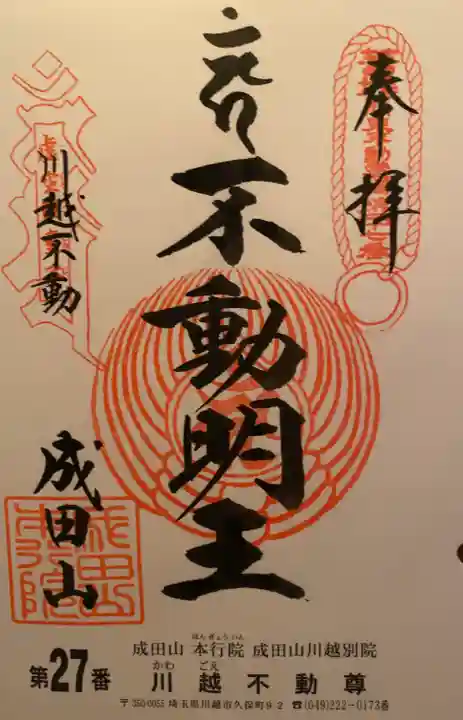 奉拝
不動明王
川越不動
成田山
成田山 本行院 成田山川越別院
ほんぎょういん
第27番
かわ ごえ
川越不動尊
〒350-0055 埼玉県川越市久保町9-2 ☎(049)222-0173番